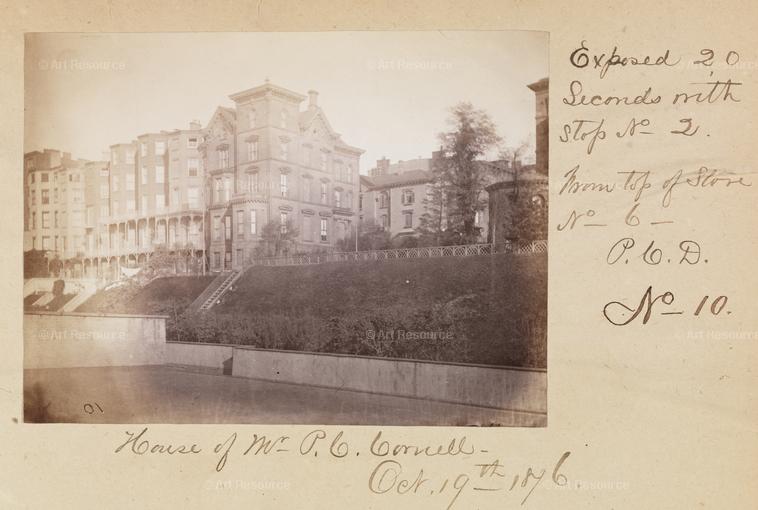 Exposed 20
Seconds with
Stop No 2.
From top of Store
No 6 –
P. C. D.
No 10.
10
House of Mr P. C. Cornell –
Oct. 19th 1876
© Art Resource
© Art Resource
© Art Resource
© Art Resource
© Art Resource
© Art Resource
© Art Resource
© Art Resource
© Art Resource
© Art Resource
© Art Resource